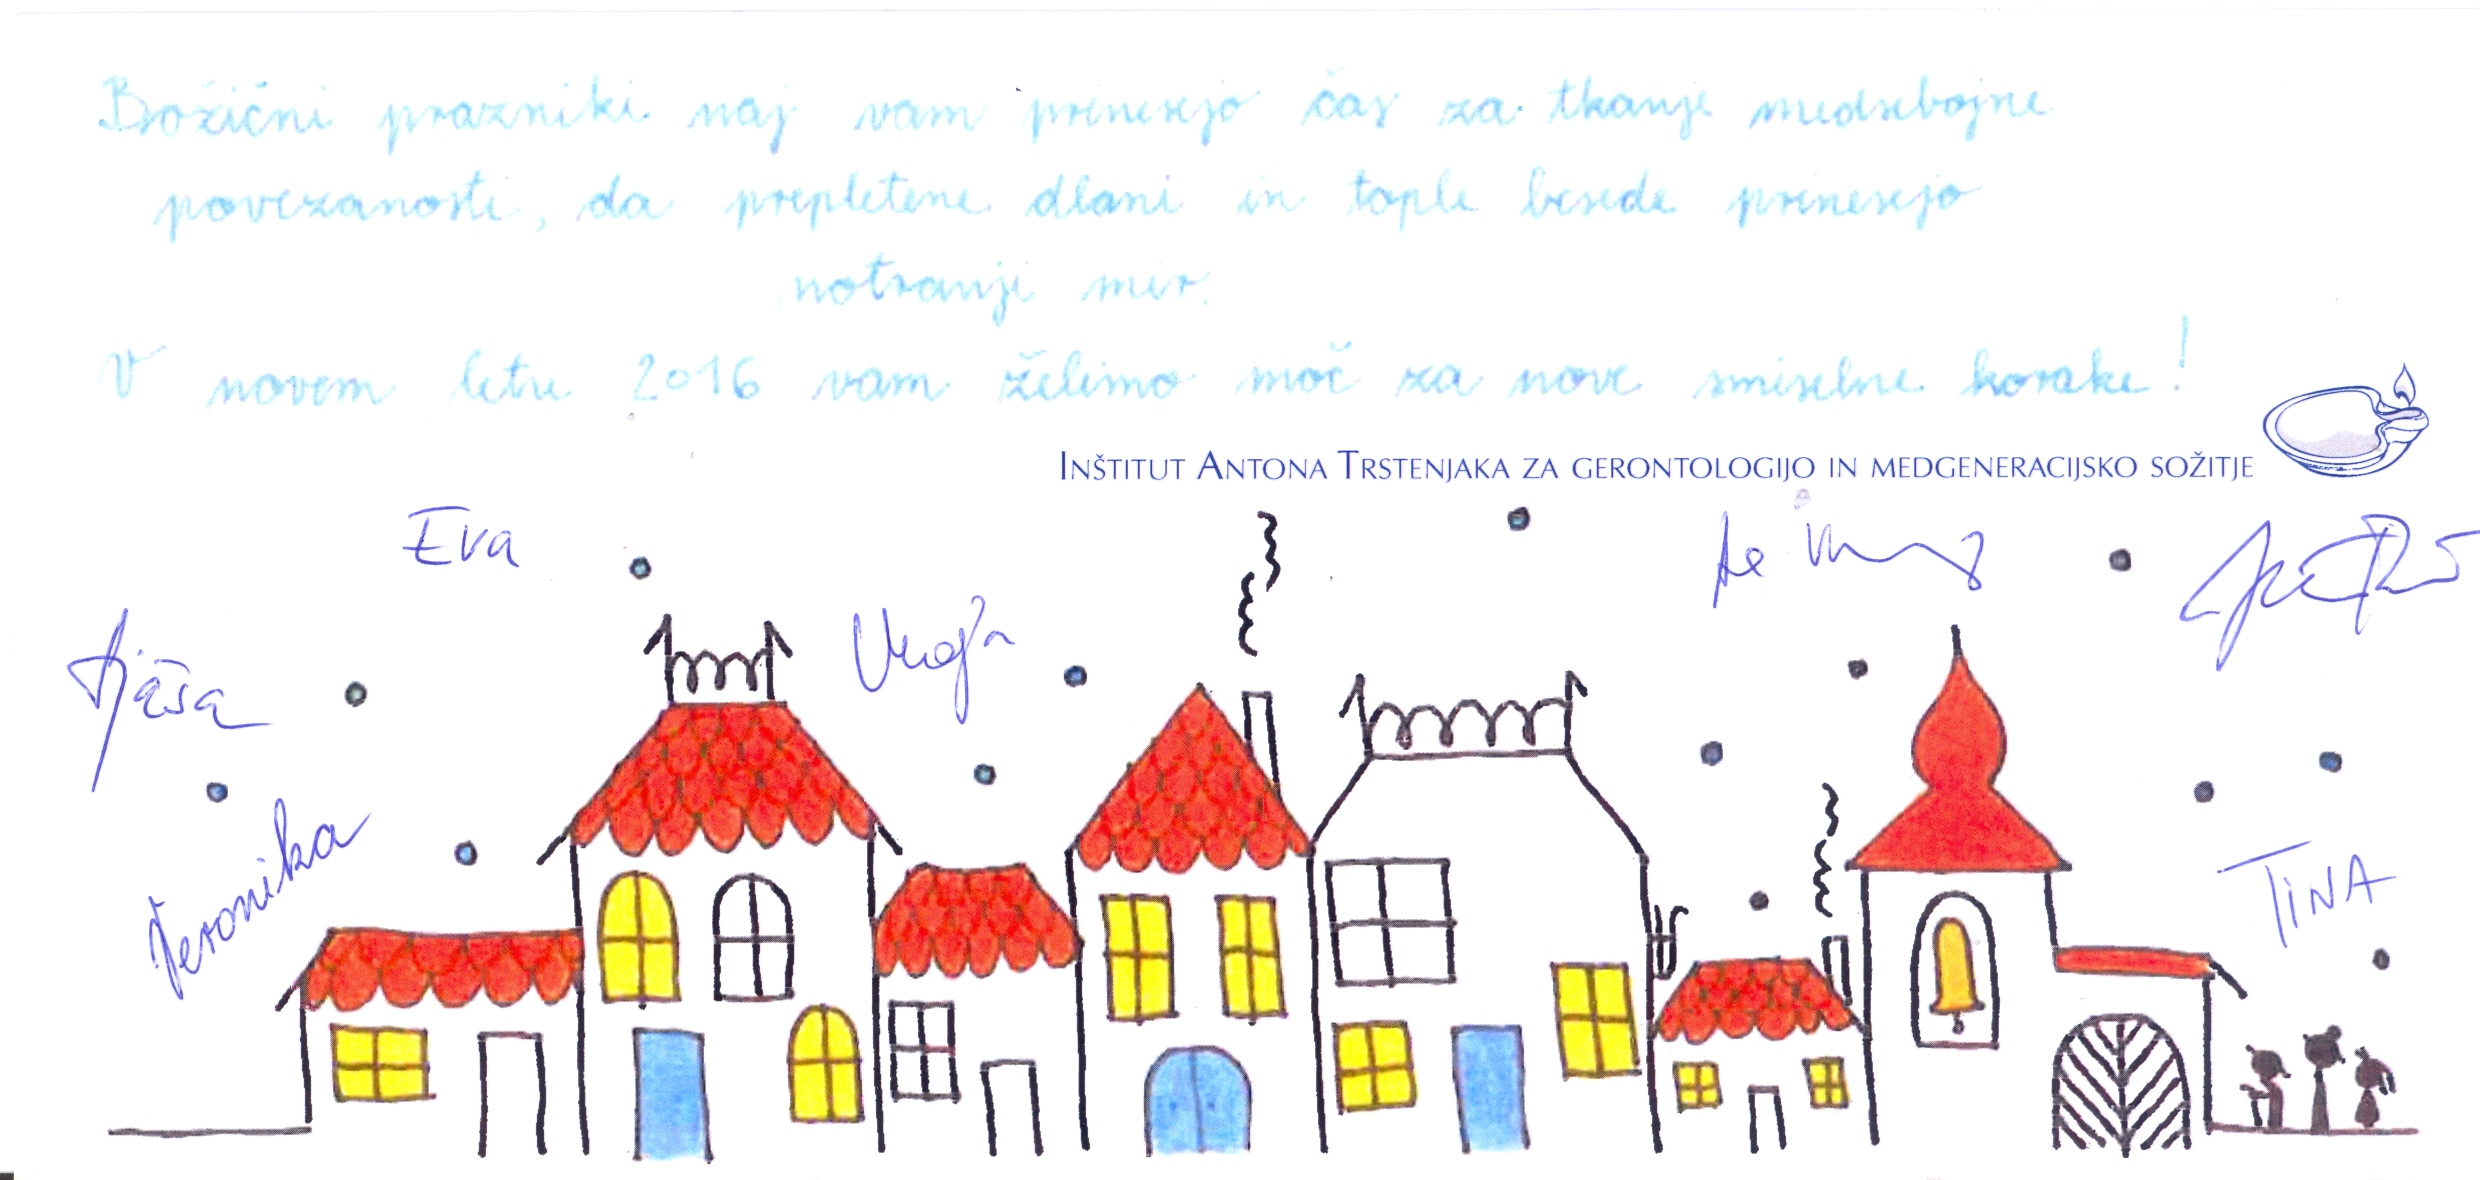 Božični prazniki naj vam prinesejo čas za tkanje medsebojne
povezanosti, da prepletene dlani in tople besede prinesejo
notranji mir.
V novem letu 2016 vam želimo moč za nove smiselne korake!
INŠTITUT ANTONA TRSTENJAKA ZA GERONTOLOGIJO IN MEDGENERACIJSKO SOŽITJE
Eva
Tjaša
Veronika
TINA